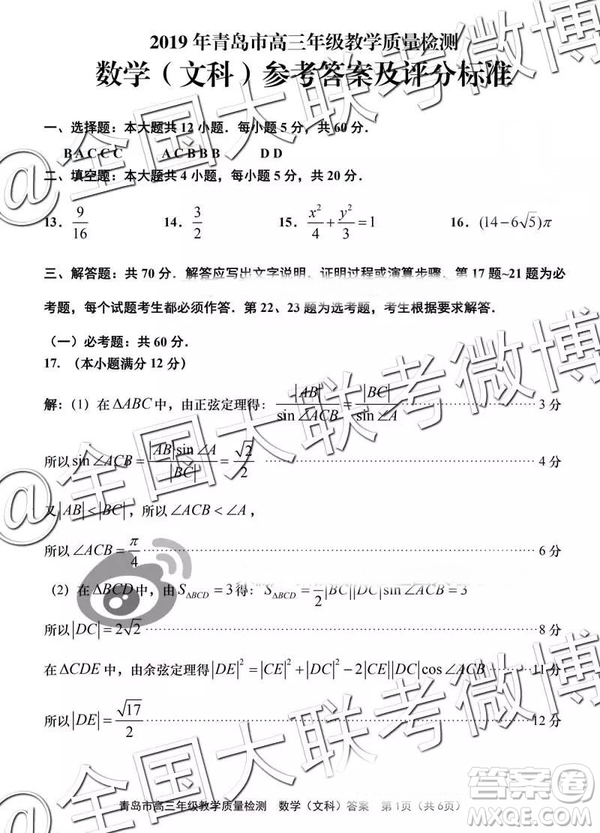 2019 年青岛市高三年级教学质量检测
数学（文科）参考答案及评分标准
一、选择题：本大题共 12 小题．每小题 5 分，共 60 分．
B A C C C A C B B B D D
二、填空题：本大题共 4 小题，每小题 5 分，共 20 分．
13．9/16 14．3/2 15．x²/4 + y²/3 = 1 16．(14−6√5)π
三、解答题：共 70 分．解答应写出文字说明、证明过程或演算步骤．第 17 题~21 题为必
考题，每个试题考生都必须作答．第 22、23 题为选考题，考生根据要求解答．
（一）必考题：共 60 分．
17．（本小题满分 12 分）
解：(1) 在 ΔABC 中，由正弦定理得：|AB|/sin∠ACB = |BC|/sin∠A ……… 3 分
所以 sin∠ACB = |AB|sin∠A/|BC| = √2/2 ……… 4 分
又 |AB| < |BC|，所以 ∠ACB < ∠A，
所以 ∠ACB = π/4 ……… 6 分
（2）在 ΔBCD 中，由 S_ΔBCD = 3 得：S_ΔBCD = 1/2|BC||DC|sin∠ACB = 3
所以 |DC| = 2√2 ……… 8 分
在 ΔCDE 中，由余弦定理得 |DE|² = |CE|² + |DC|² − 2|CE||DC|cos∠ACB ……… 11 分
所以 |DE| = √17/2 ……… 12 分
青岛市高三年级教学质量检测 数学（文科）答案 第 1页（共 6页）
@全国大联考微博
@全国大联考微博
@全国大联考微博
答案圈
MXQE.COM